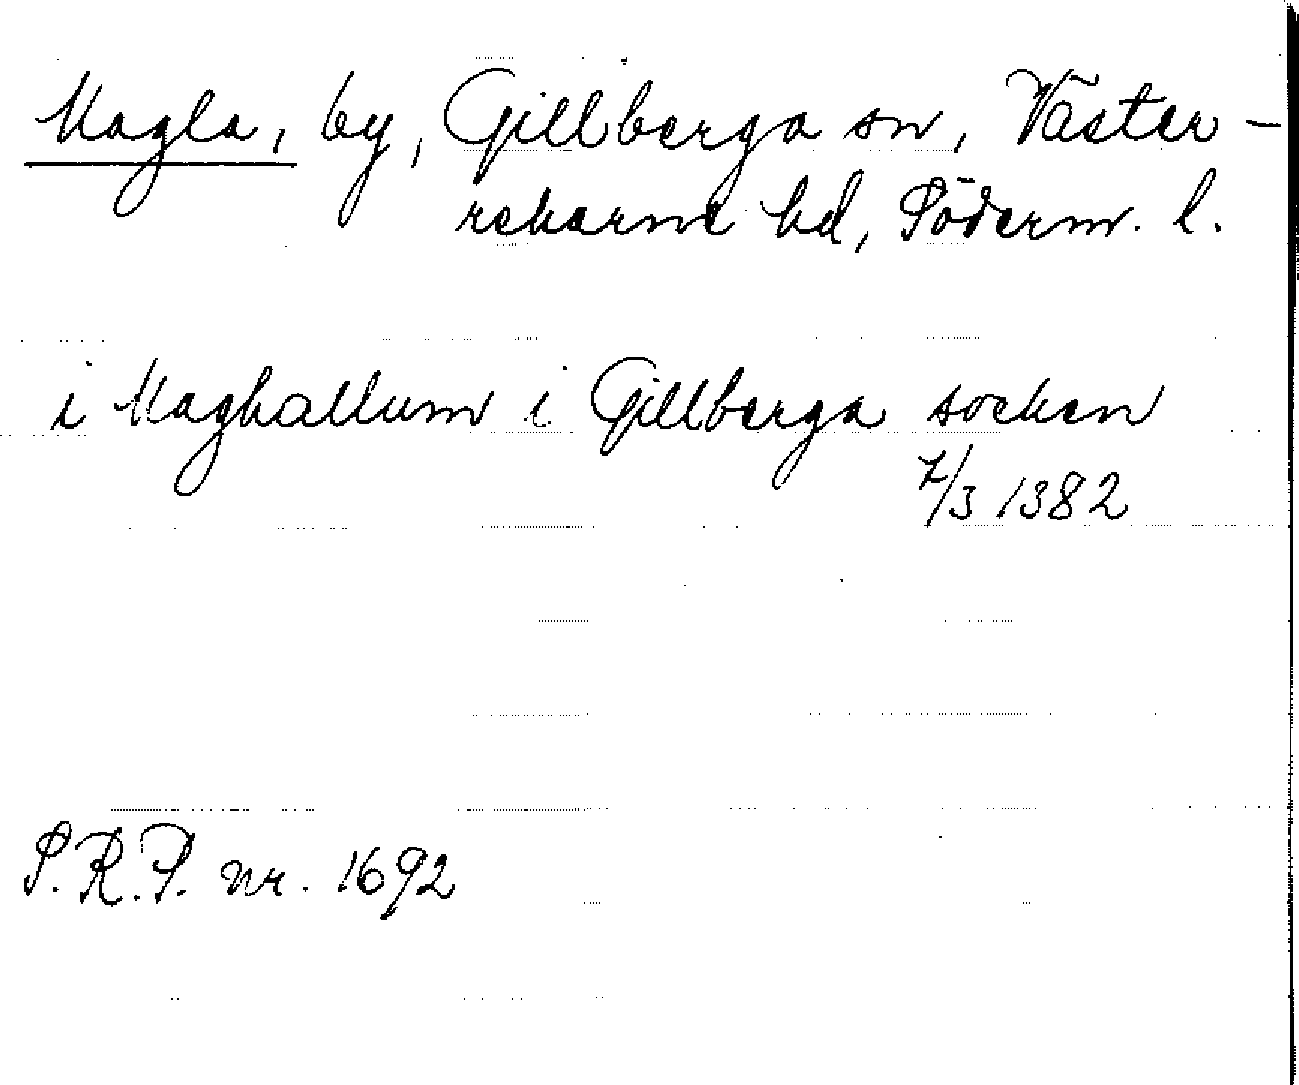 Magla, by, Gillberga sn, Väster-
rekarne hd, Söderm. l.
i Maghallum i Gillberga socken
7/3 1382
S.R.P. nr. 1692